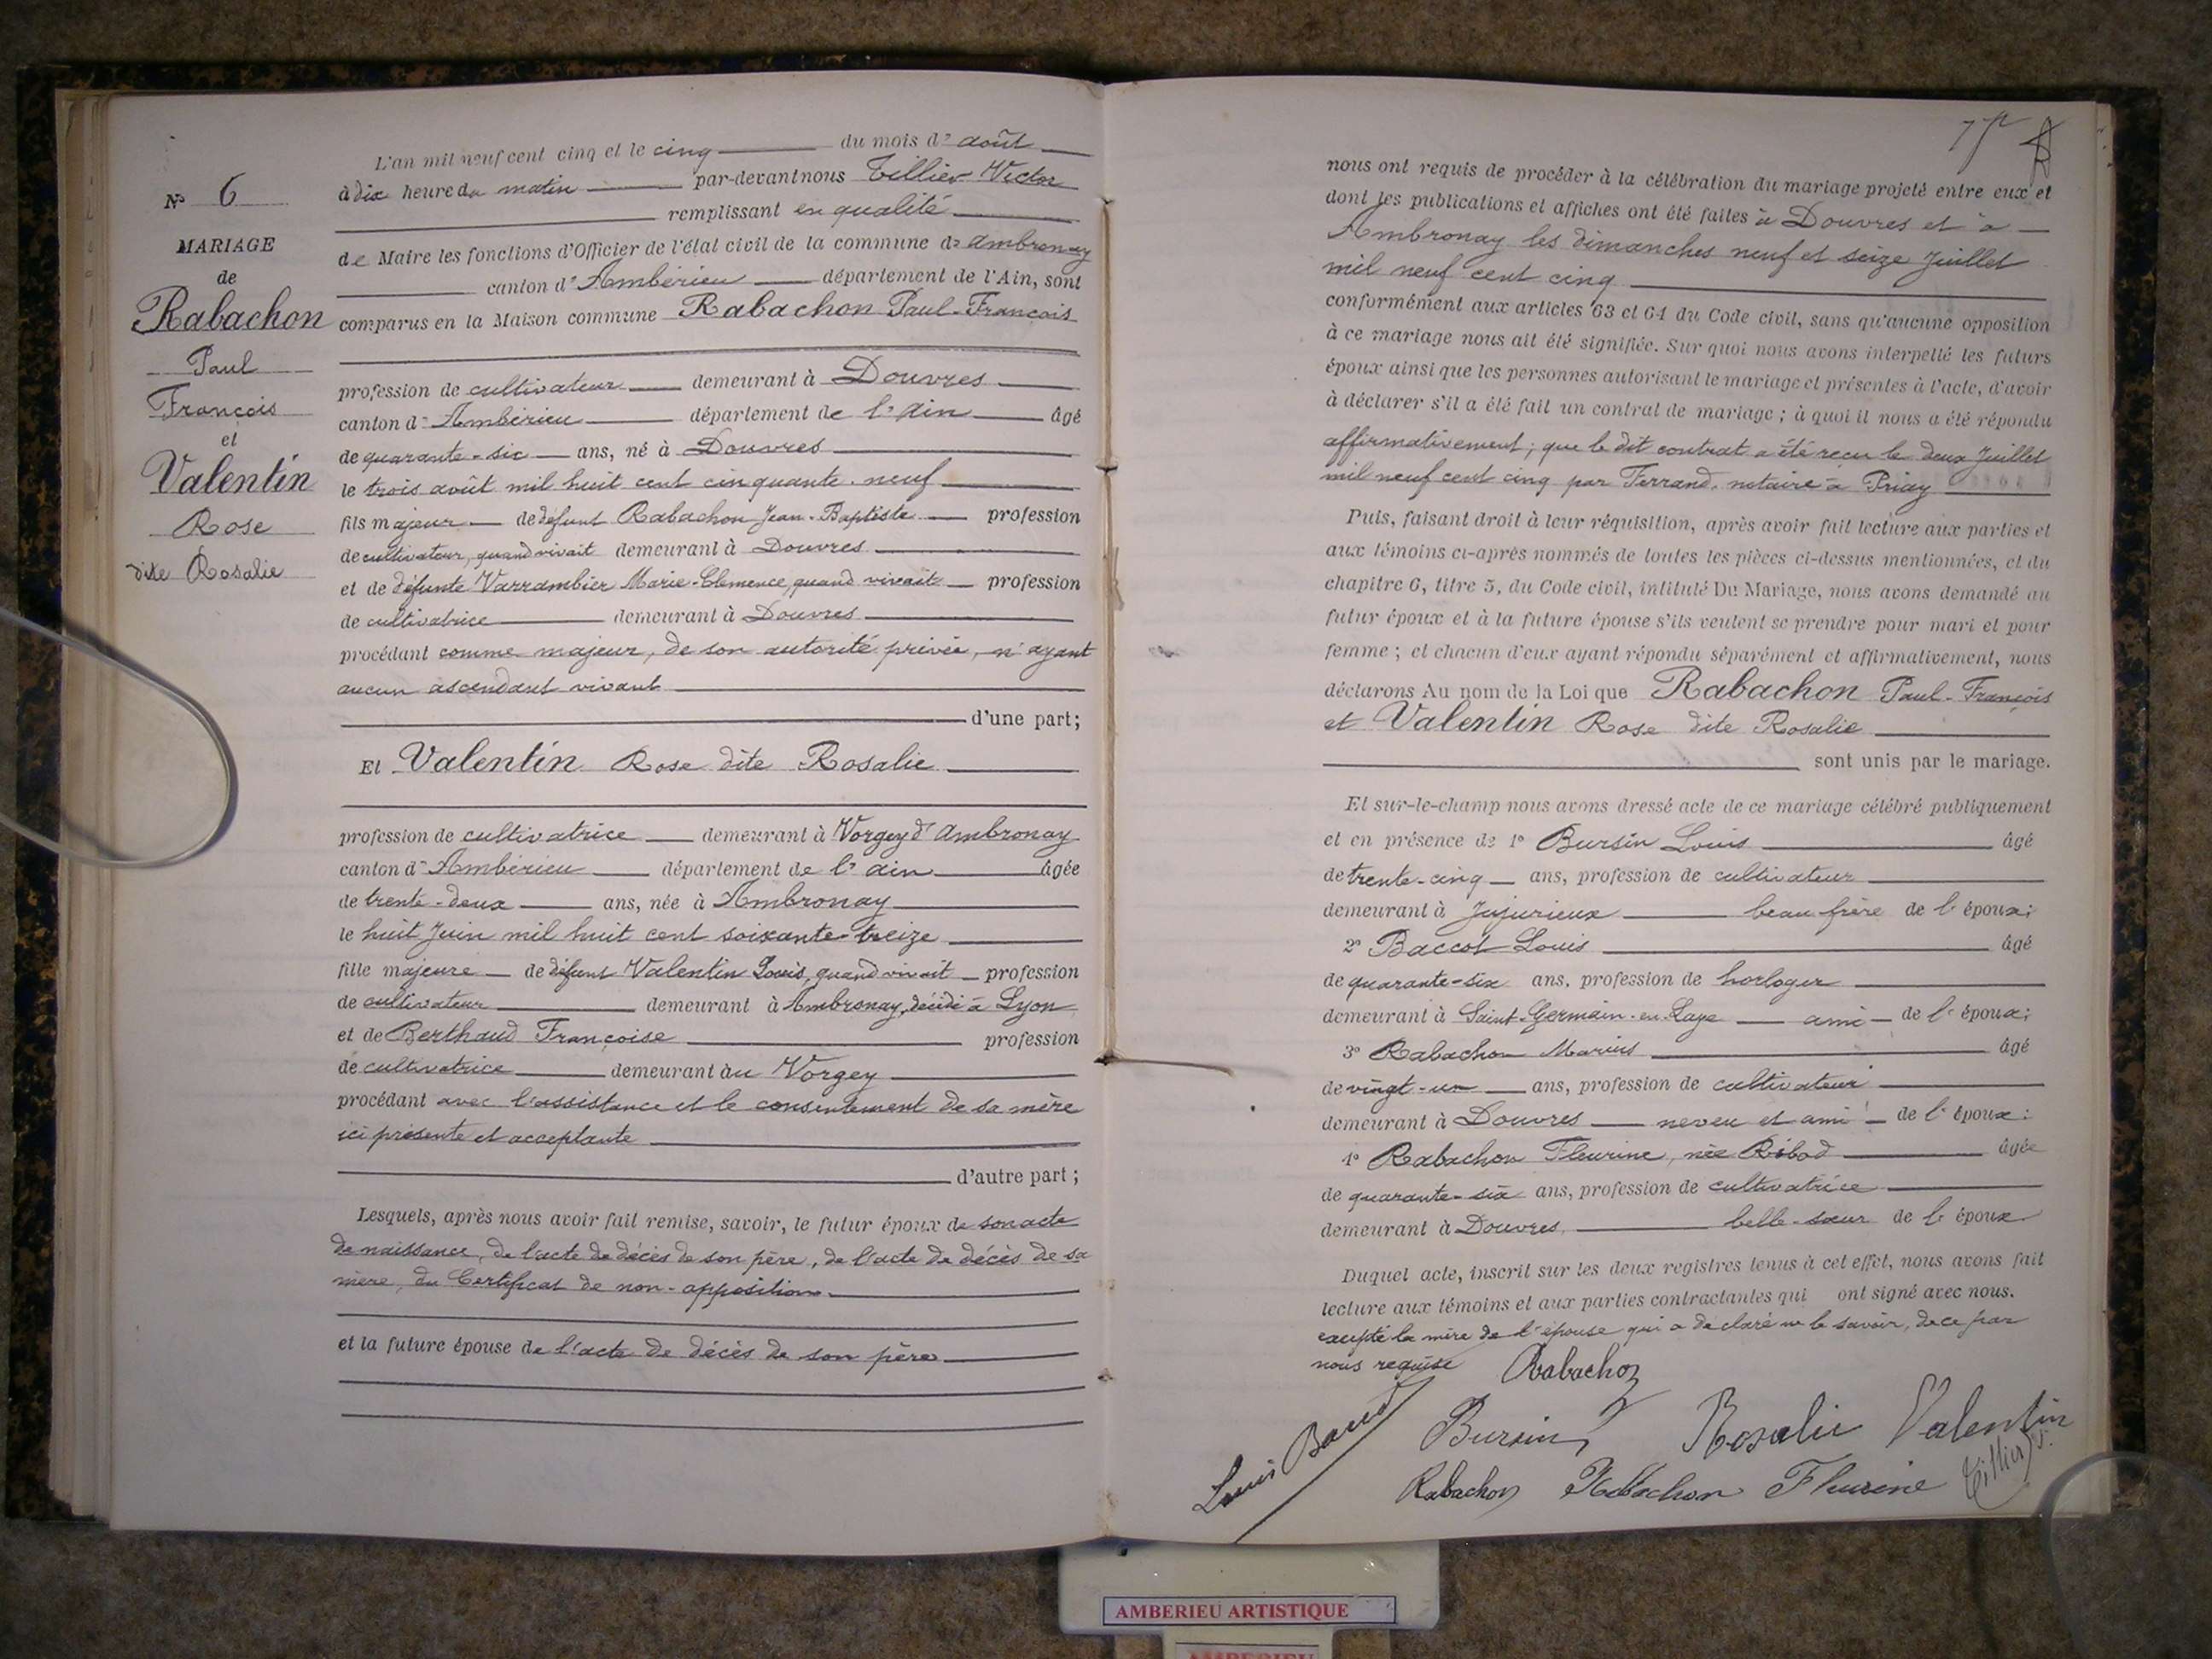 N° 6
MARIAGE
de
Rabachon
Paul
François
et
Valentin
Rose
dite Rosalie
L'an mil neuf cent cinq et le cinq du mois d'août
à dix heure du matin par-devant nous Tillier Victor
remplissant en qualité
de Maire les fonctions d'Officier de l'état civil de la commune de Ambronay
canton d'Ambérieu département de l'Ain, sont
comparus en la Maison commune Rabachon Paul-François
profession de cultivateur demeurant à Douvres
canton d'Ambérieu département de l'Ain âgé
de quarante-six ans, né à Douvres
le trois août mil huit cent cinquante-neuf
fils majeur de défunt Rabachon Jean-Baptiste profession
de cultivateur, quand vivait demeurant à Douvres
et de défunte Varrambier Marie-Clémence, quand vivait profession
de cultivatrice demeurant à Douvres
procédant comme majeur, de son autorité privée, n'ayant
aucun ascendant vivant
d'une part;
Et Valentin Rose dite Rosalie
profession de cultivatrice demeurant à Vorgey d'Ambronay
canton d'Ambérieu département de l'ain âgée
de trente-deux ans, née à Ambronay
le huit Juin mil huit cent soixante-treize
fille majeure de défunt Valentin Louis, quand vivait profession
de cultivateur demeurant à Ambronay, décédé à Lyon
et de Berthaud Françoise profession
de cultivatrice demeurant au Vorgey
procédant avec l'assistance et le consentement de sa mère
ici présente et acceptante
d'autre part;
Lesquels, après nous avoir fait remise, savoir, le futur époux de son acte
de naissance, de l'acte de décès de son père, de l'acte de décès de sa
mère, du Certificat de non-opposition
et la future épouse de l'acte de décès de son père
nous ont requis de procéder à la célébration du mariage projeté entre eux et
dont les publications et affiches ont été faites à Douvres et à
Ambronay les dimanches neuf et seize Juillet
mil neuf cent cinq
conformément aux articles 63 et 64 du Code civil, sans qu'aucune opposition
à ce mariage nous ait été signifiée. Sur quoi nous avons interpellé les futurs
époux ainsi que les personnes autorisant le mariage et présentes à l'acte, d'avoir
à déclarer s'il a été fait un contrat de mariage; à quoi il nous a été répondu
affirmativement; que le dit contrat a été reçu le deux Juillet
mil neuf cent cinq par Ferrand, notaire à Priay
Puis, faisant droit à leur réquisition, après avoir fait lecture aux parties et
aux témoins ci-après nommés de toutes les pièces ci-dessus mentionnées, et du
chapitre 6, titre 5, du Code civil, intitulé Du Mariage, nous avons demandé au
futur époux et à la future épouse s'ils veulent se prendre pour mari et pour
femme; et chacun d'eux ayant répondu séparément et affirmativement, nous
déclarons Au nom de la Loi que Rabachon Paul-François
et Valentin Rose dite Rosalie
sont unis par le mariage.
Et sur-le-champ nous avons dressé acte de ce mariage célébré publiquement
et en présence de 1° Bursin Louis âgé
de trente-cinq ans, profession de cultivateur
demeurant à Jujurieux beau frère de l'époux;
2° Baccot Louis âgé
de quarante-six ans, profession de horloger
demeurant à Saint-Germain-en-Laye ami de l'époux;
3° Rabachon Marius âgé
de vingt-un ans, profession de cultivateur
demeurant à Douvres neveu et ami de l'époux:
4° Rabachon Fleurine, née Ribod âgée
de quarante-six ans, profession de cultivatrice
demeurant à Douvres, belle-sœur de l'époux
Duquel acte, inscrit sur les deux registres tenus à cet effet, nous avons fait
lecture aux témoins et aux parties contractantes qui ont signé avec nous.
excepté la mère de l'épouse qui a déclaré ne le savoir, de ce par
nous requise Rabachon
Louis Bursin Rosalie Valentin
Rabachon Rabachon Fleurine Tillier V.
AMBERIEU ARTISTIQUE
AMBERIEU